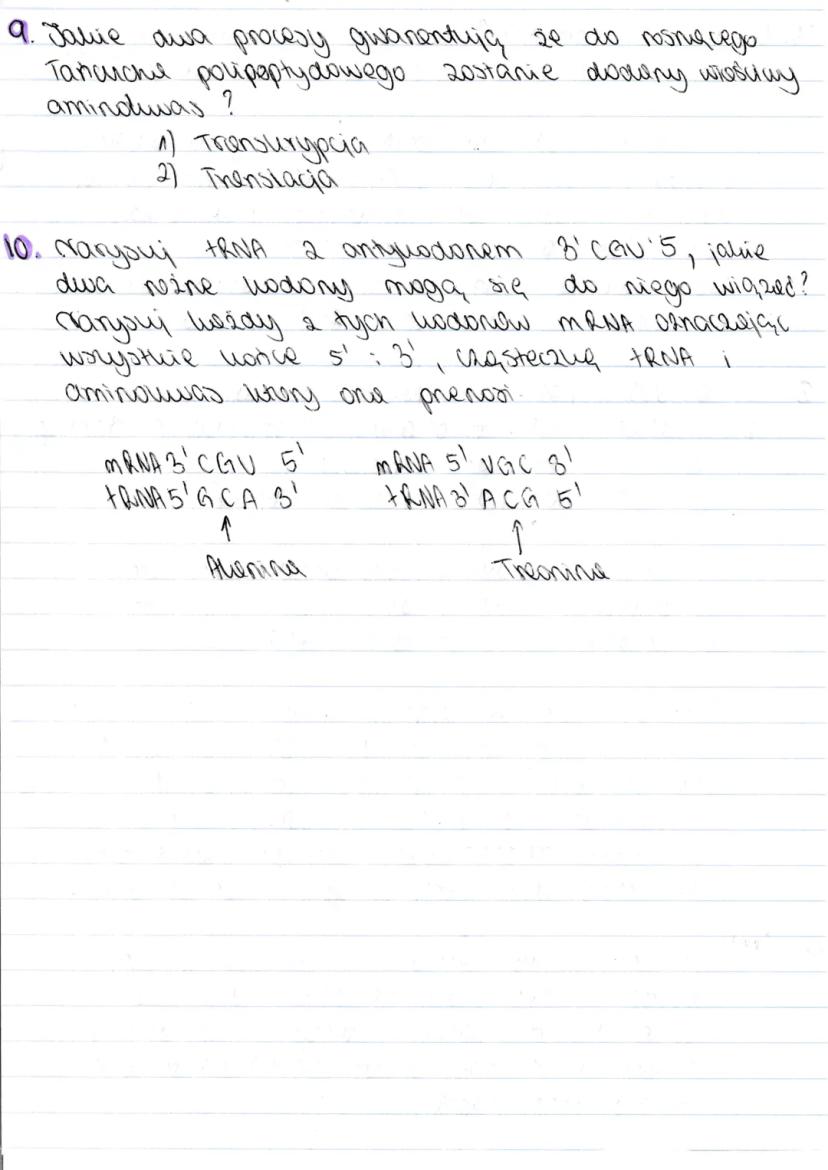 9. Jakie dwa procesy gwarantują że do rosnącego
łańcucha polipeptydowego zostanie dodany właściwy
aminokwas ?
1) Transkrypcja
2) Translacja
10. Narysuj tRNA z antykodonem 3' CGU '5, jakie
dwa różne kodony mogą się do niego wiązać?
Narysuj każdy z tych kodonów mRNA oznaczając
wszystkie końce 5' i 3', cząsteczkę tRNA i
aminokwas który ona przenosi.
mRNA 3' CGU 5' mRNA 5' UGC 3'
tRNA 5' GCA 3' tRNA 3' ACG 5'
↑ ↑
Alanina Treonina